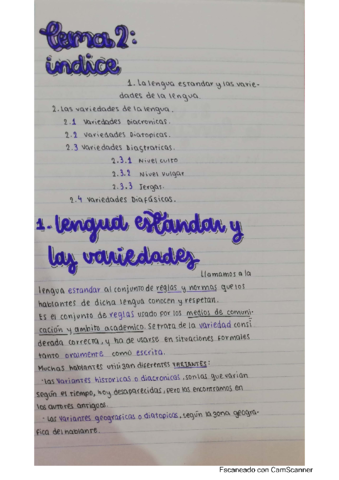 tema 2:
índice
1. La lengua estandar y las varie-
dades de la lengua.
2. Las variedades de la lengua.
2.1 Variedades Diacronicas.
2.2 Variedades Diatopicas.
2.3 Variedades Diastraticas.
2.3.1 Nivel culto
2.3.2 Nivel vulgar
2.3.3 Jergas.
2.4 Variedades Diafásicas.
1. lengua estandar y
las variedades
Llamamos a la
lengua estandar al conjunto de reglas y normas que los
hablantes de dicha lengua conocen y respetan.
Es el conjunto de reglas usado por los medios de comuni-
cación y ambito academico. Se trata de la variedad consi
derada correcta, y ha de usarse en situaciones formales
tanto oralmente como escrita.
Muchas hablantes utilizan diferentes VARIANTES:
· las variantes historicas o diacronicas, son las que varian
según el tiempo, hoy desaparecidas, pero las encontramos en
los autores antiguos.
· las variantes geograficas o diatopicas, según la zona geogra-
fica del hablante.
Escaneado con CamScanner